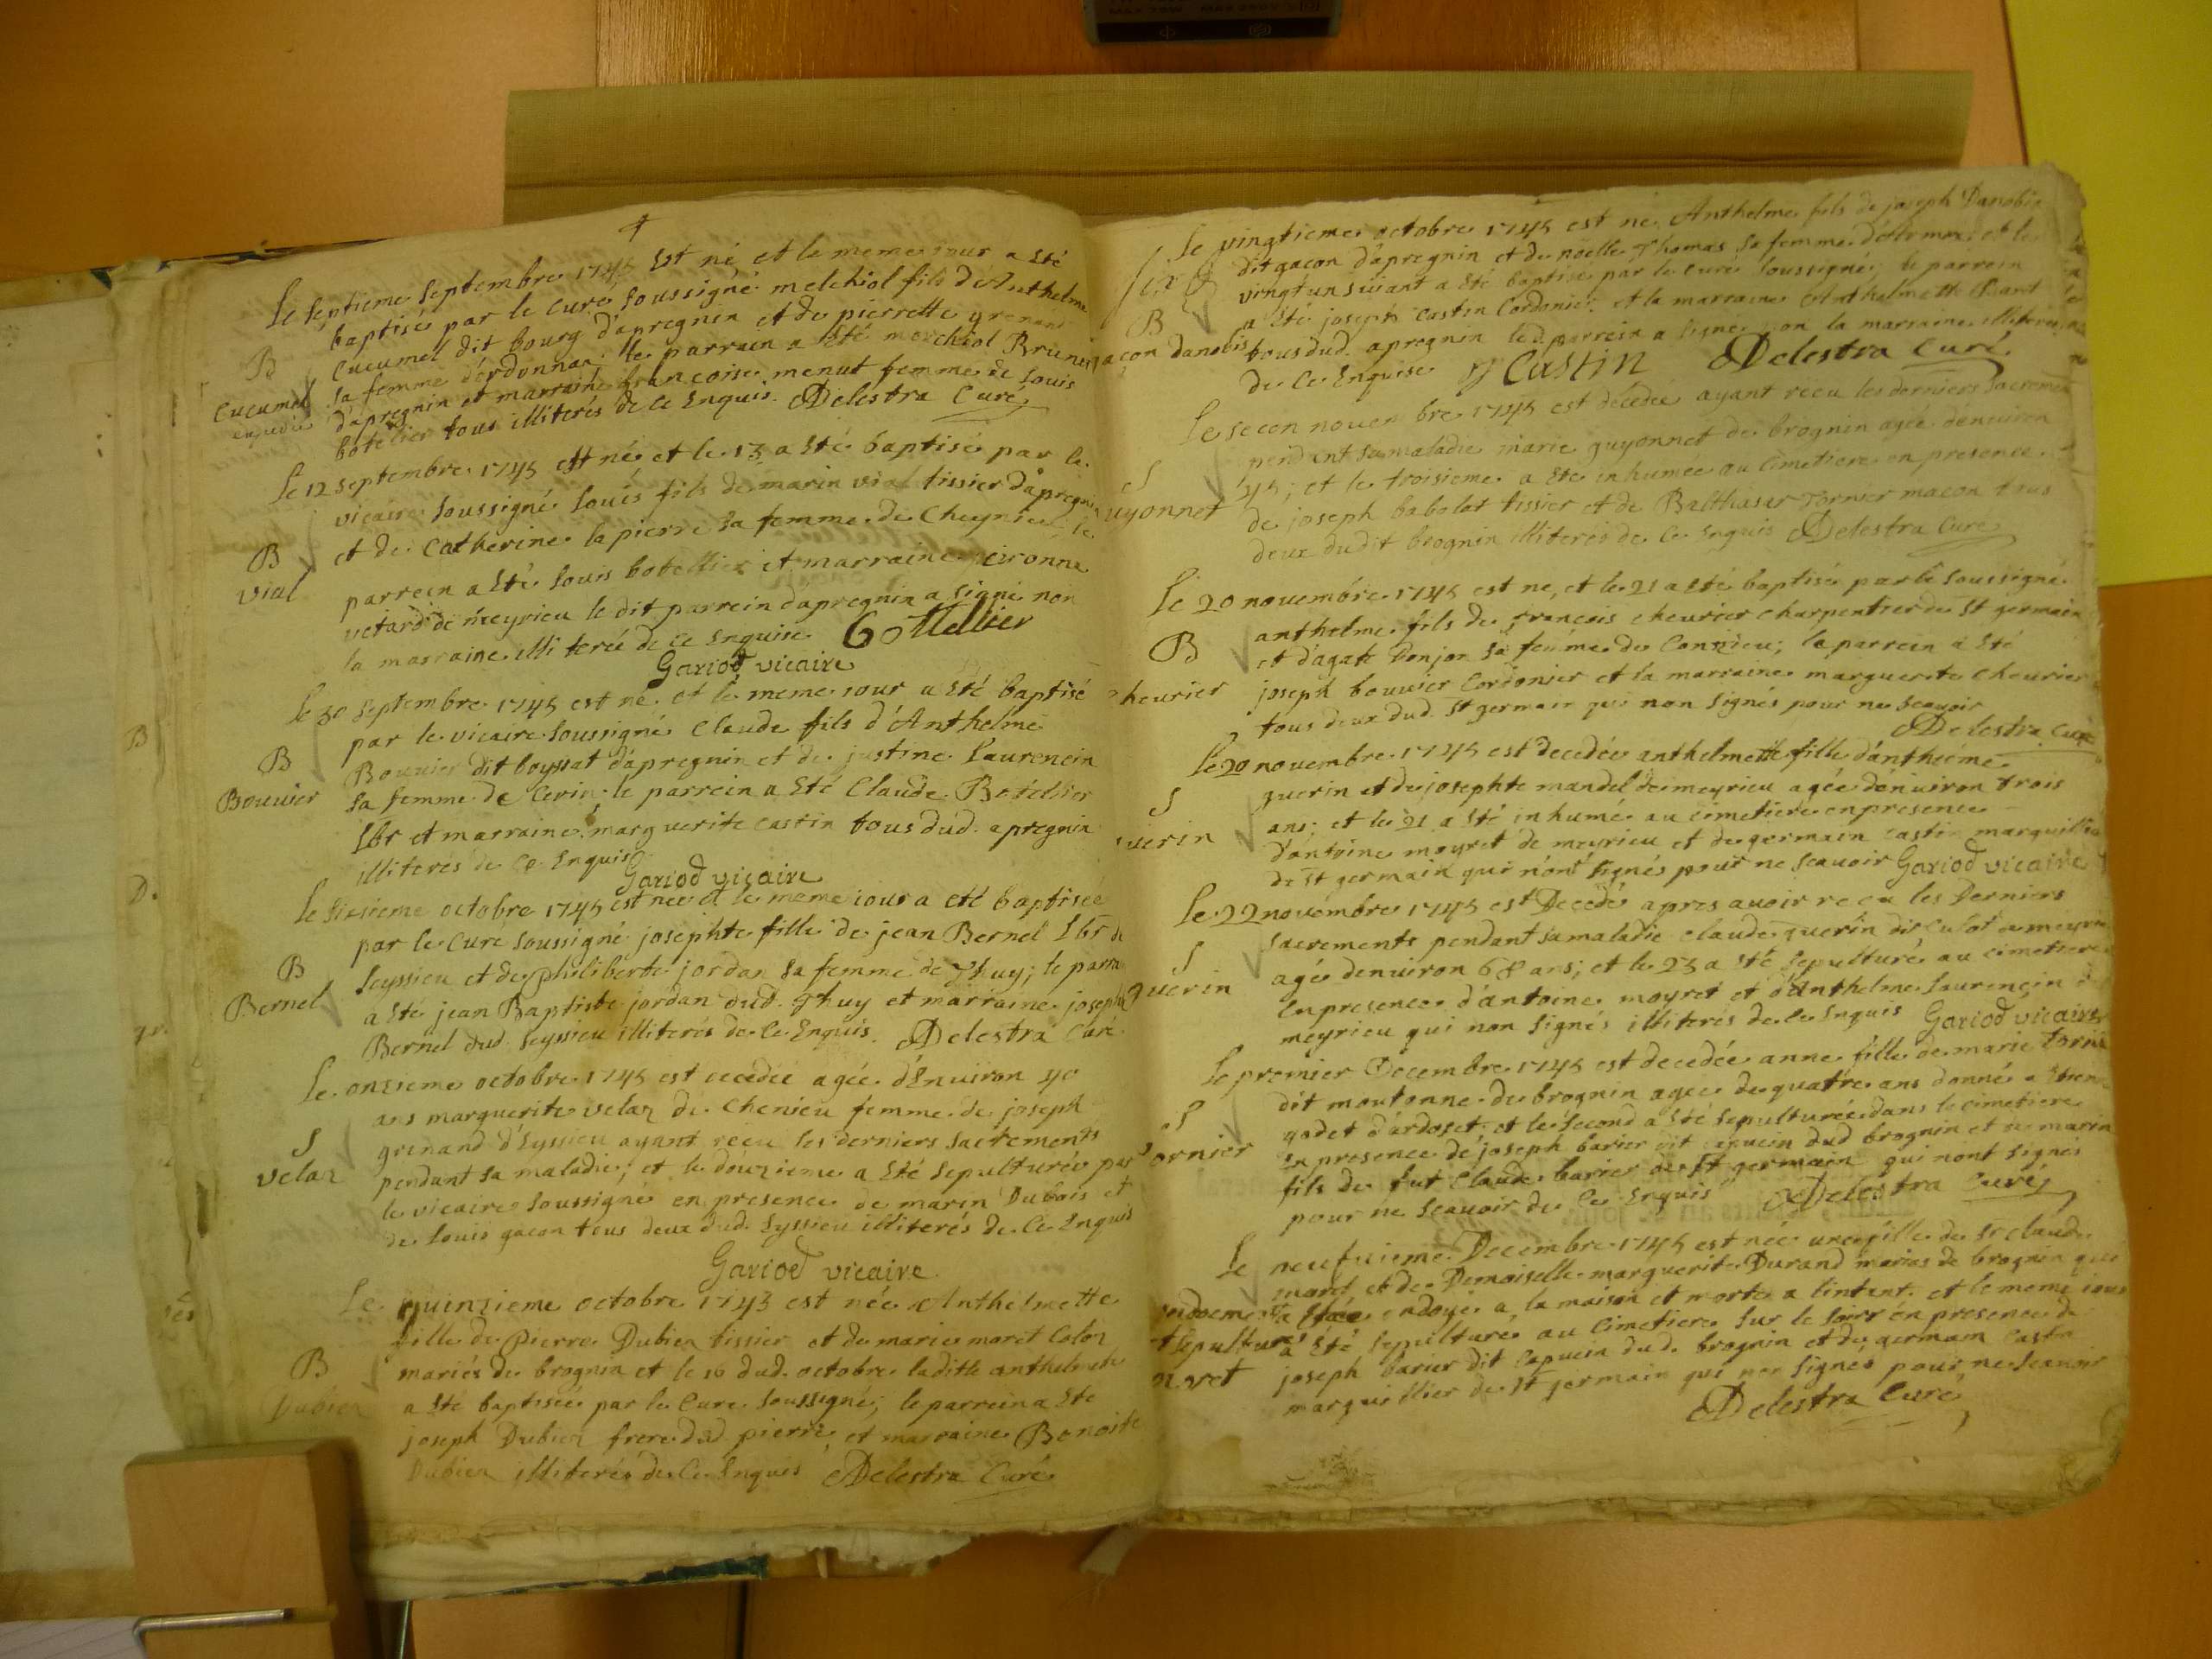 4
Le septieme septembre 1745 est né et le meme jour a eté
baptisé par le curé soussigné melchiol fils d'Anthelme
B
cucumel dit bourg d'apregnin et de pierrette grenand
cucumel
sa femme d'ordonnaz; le parrain a eté morchiol Brunin
expedié
d'apregnin et marraine francoise menut femme de Louis
botelier tous illiterés de ce Enquis. Delestra Curé
Le 12 septembre 1745 est né et le 13 a eté baptisé par le
vicaire soussigné Louis fils de marin vial tissier d'apregnin
B
et de Catherine la pierre sa femme de Cheynieu le
vial
parrein a eté Louis botellier et marraine
vetard de meyrieu le dit parrein dapregnin a signé non
la marraine illiterée de ce Enquise Botellier
Gariod vicaire
Le 30 septembre 1745 est né et le meme jour a eté baptisé
par le vicaire soussigné Claude fils d'Anthelme
B
Bouvier dit boyssat d'apregnin et de justine Laurencin
Bouvier
sa femme de Cevin; le parrein a eté Claude Botellier
Lbr et marraine marguerite castin tous dud. apregnin
illiterés de ce Enquis
Gariod vicaire
Le sixieme octobre 1745 est nee et le meme iour a eté baptisée
par le Curé soussigné josephte fille de jean Bernel Lbr de
B
Seyssieu et de philiberte jordan sa femme de Thuy; le parra
Bernel
a eté jean Baptiste jordan dud. Thuy et marraine joseph
Bernel dud. Seyssieu illiterés de ce Enquis. Delestra Curé
Le onzieme octobre 1745 est decedée agée d'Environ 40
ans marguerite velaz de chenieu femme de joseph
S
grenand d'Eyssieu ayant recu les derniers sacrements
velaz
pendant sa maladie; et le douzieme a eté sepulturée par
le vicaire soussigné en presence de marin Dubois et
de Louis gacon tous deux dud. Eyssieu illiterés de ce Enquis
Gariod vicaire
Le quinzieme octobre 1745 est née Anthelmette
fille de Pierre Dubiez tissier et de marie moret Coloz
B
mariés de brognin et le 16 dud. octobre laditte anthelmette
Dubiez
a eté baptisée par le Curé soussigné; le parrein a eté
joseph Dubiez frere dud pierre, et marraine Benoite
Dubiez illiterés de ce Enquis Delestra Curé
Le vingtieme octobre 1745 est né Anthelme fils de joseph Danobis
dit gacon d'apregnin et de noëlle Thomas sa femme et le
vingt un suivant a eté baptisé par le curé soussigné; le parrein
B
a eté joseph castin Cordonier et la marraine Anthelmette
acon danobis
tous dud. apregnin led. parrein a signé non la marraine illiterée
de ce Enquise J Castin Delestra Curé
Le secon novenbre 1745 est décédée ayant recu les derniers sacremen
pendant sa maladie marie guyonnet de brognin agée denviron
S
45; et le troisieme a eté inhumée au cimetiere en presence
uyonnet
de joseph babolat tissier et de Balthasar Tornier macon tous
deux dudit brognin illiterés de ce Enquis Delestra Curé
Le 20 novembre 1745 est né, et le 21 a eté baptisé par le soussigné
anthelme fils de francois chevrier charpentier de St germain
B
et d'agate Donjon sa femme de Conzieu; le parrein a eté
hevrier
joseph bouvier Cordonier et la marraine marguerite chevrier
tous deux dud. St germain qui non signés pour ne scavoir
Delestra Curé
Le 20 novembre 1745 est decedée anthelmette fille d'antheme
guerin et de josephte mandel de meyrieu agée d'environ trois
S
ans; et le 21 a eté inhumé au cimetiere en presence
uerin
d'antoine moyret de meyrieu et de germain castin marguillier
de St germain qui n'ont signés pour ne scavoir Gariod vicaire
Le 22 novembre 1745 est Decedé apres avoir recu les Derniers
sacrements pendant sa maladie claude guerin dit culot de meyrieu
S
agée denviron 68 ans; et le 23 a eté sepulturé au cimetiere
guerin
En presence d'antoine moyret et d'Anthelme Laurencin de
meyrieu qui non signés illiterés de ce Enquis Gariod vicaire
Le premier Decembre 1745 est decedée anne fille de marie tornie
dit moutonne de brognin agee de quatre ans donné a
S
godet d'ardoset; et le second a eté sepulturée dans le cimetiere
ornier
En presence de joseph barier dit capucin dud brognin et de marin
fils de fut Claude barrier de St germain qui nont signés
pour ne scavoir de ce Enquis Delestra Curé
Le neufvieme Decembre 1745 est née une fille de Sr claude
et de Demoiselle marguerite Durand mariés de brognin qui
ondoement
a etée endoyé a la maison et morte a lintant. et le meme iour
t sepulture
a eté sepulturé au cimetiere sur le soirr en presence de
joseph barier dit capucin dud. brognin et de germain castin
marguillier de St germain qui non signés pour ne scavoir
Delestra Curé